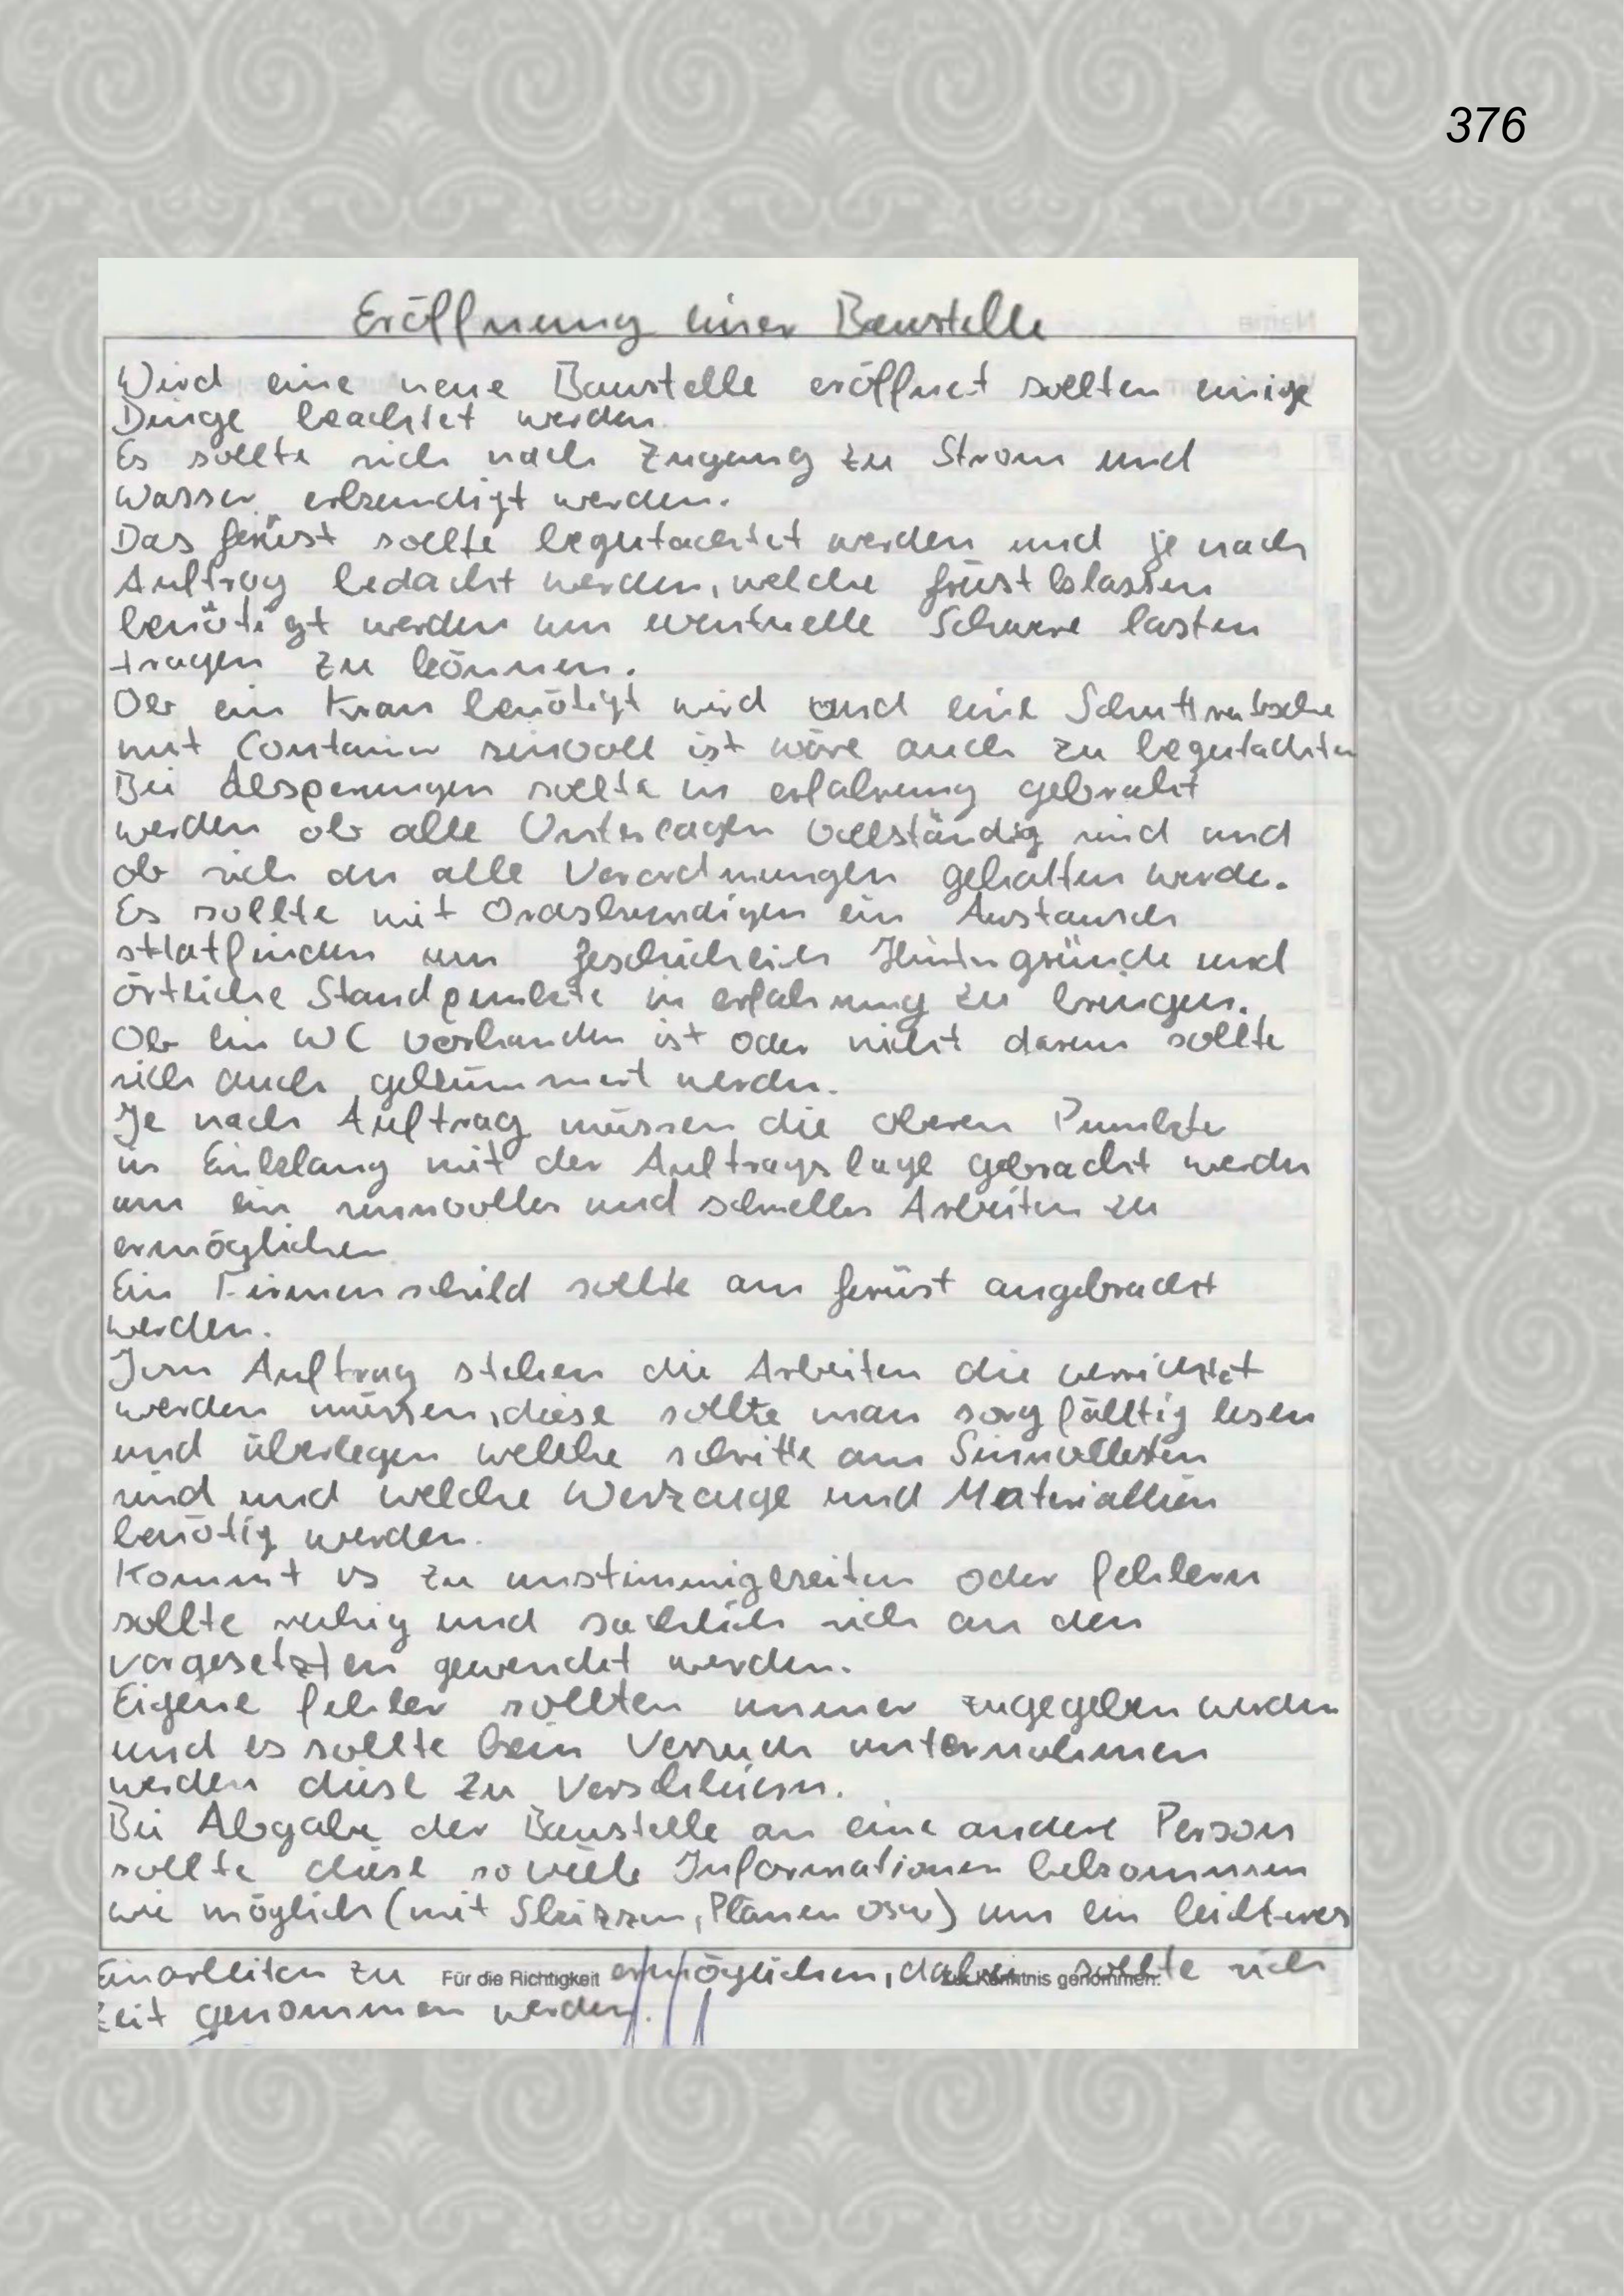 376
Eröffnung einer Baustelle
Wird eine neue Baustelle eröffnet sollten einige
Dinge beachtet werden.
Es sollte sich nach Zugang zu Strom und
Wasser erkundigt werden.
Das gerüst sollte begutachtet werden und je nach
Auftrag bedacht werden, welche grüstklassen
benötigt werden um eventuelle Schwere lasten
tragen zu können.
Ob ein Kran benötigt wird und eine Schuttrutsche
mit Container sinvoll ist wäre auch zu begutachten
Bei Absperungen sollte in erfahrung gebracht
werden ob alle Unterlagen Vollständig sind und
ob sich an alle Verordnungen gehalten werde.
Es sollte mit Ordskundigen ein Austausch
stlatfinden um geschichlich Hintergründe und
örtliche Standpunkte in erfahrung zu bringen.
Ob ein WC vorhanden ist oder nicht darum sollte
sich auch gekümmert werden.
Je nach Auftrag müssen die oberen Punkte
in Einklang mit der Auftragslage gebracht werden
um ein sinnvolles und schnelles Arbeiten zu
ermöglichen
Ein Firmenschild sollte am gerüst angebracht
werden.
Im Auftrag stehen die Arbeiten die verrichtet
werden müssen, diese sollte man sorgfälltig lesen
und überlegen welche schritte am Sinnvollesten
sind und welche Werzeuge und Materiallien
benötig werden.
Kommt es zu unstimmigkeiten oder fehlern
sollte ruhig und sachlich sich an den
vorgesetzten gewendet werden.
Eigene fehler sollten immer zugegeben werden
und es sollte kein Versuch unternohmen
werden diese zu Verschleiern.
Bei Abgabe der Baustelle an eine andere Person
sollte diese soviele Informationen bekommen
wie möglich (mit Skizzen, Plänen usw) um ein leichteres
Einarbeiten zu Für die Richtigkeit ermöglichen, dabei sollte sich zur Kenntnis genommen:
Zeit genommen werden.